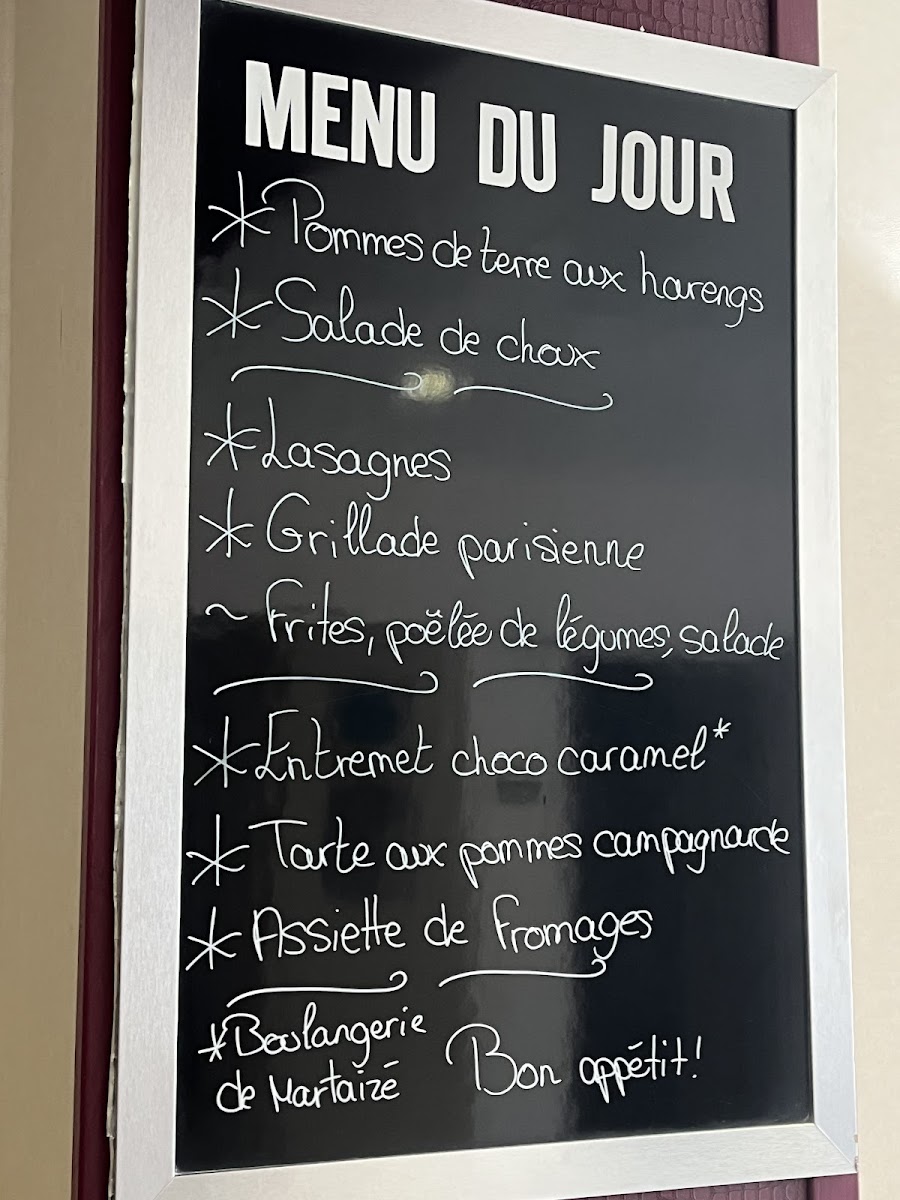 MENU DU JOUR
* Pommes de terre aux harengs
* Salade de choux
* Lasagnes
* Grillade parisienne
~ Frites, poëlée de légumes, salade
* Entremet choco caramel*
* Tarte aux pommes campagnarde
* Assiette de fromages
*Boulangerie
de Martaizé
Bon appétit!